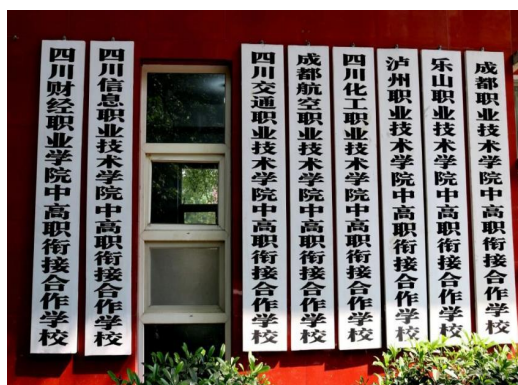 四川财经职业学院中高职衔接合作学校
四川信息职业技术学院中高职衔接合作学校
四川交通职业技术学院中高职衔接合作学校
成都航空职业技术学院中高职衔接合作学校
四川化工职业技术学院中高职衔接合作学校
泸州职业技术学院中高职衔接合作学校
乐山职业技术学院中高职衔接合作学校
成都职业技术学院中高职衔接合作学校